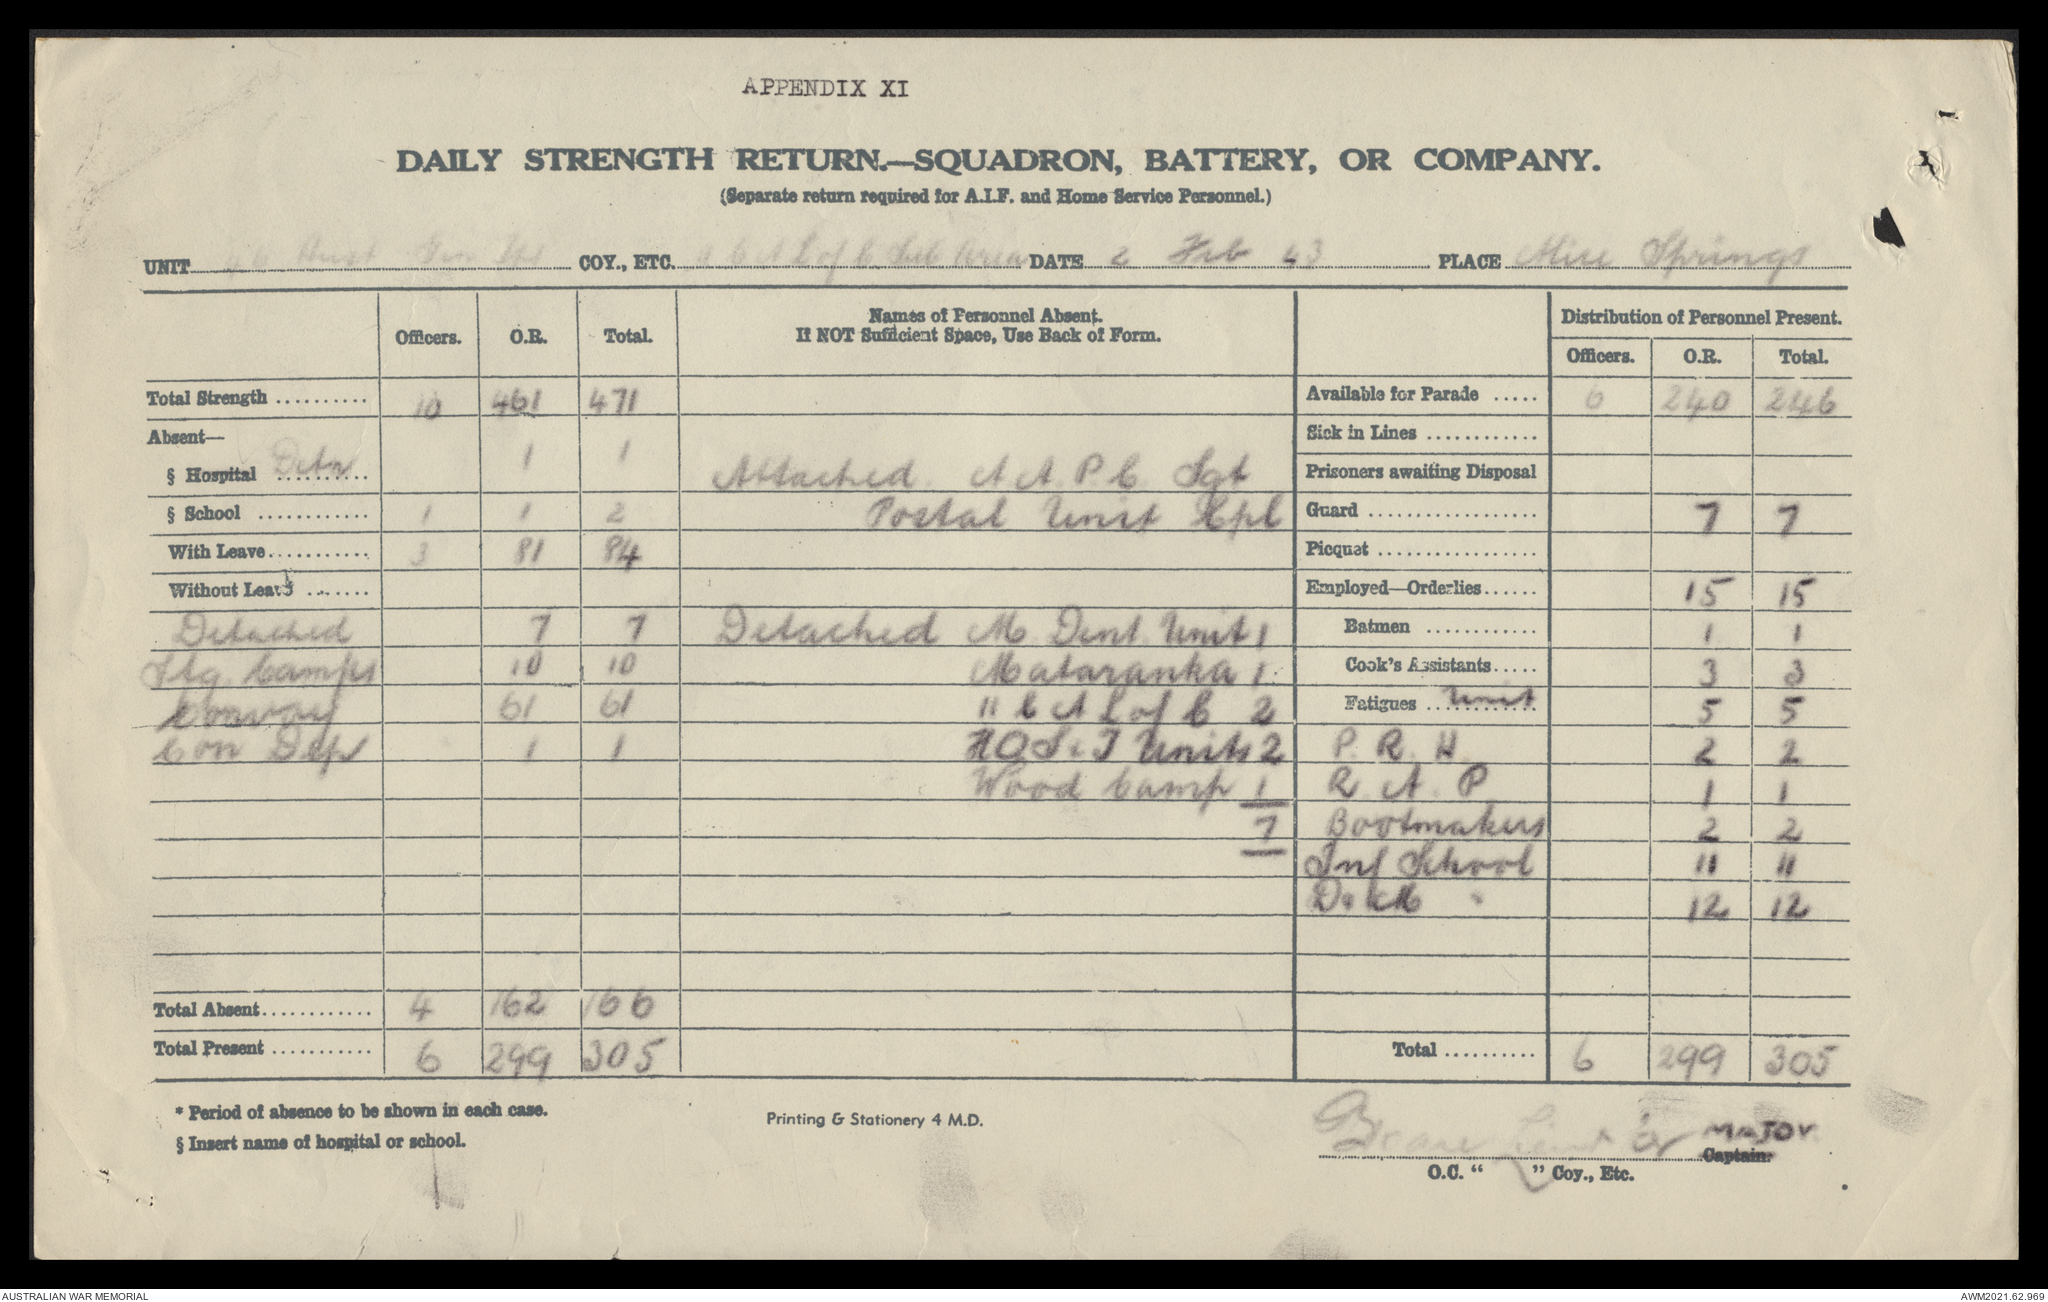 APPENDIX XI
DAILY STRENGTH RETURN.—SQUADRON, BATTERY, OR COMPANY.
(Separate return required for A.I.F. and Home Service Personnel.)
UNIT 46 Aust Gen Tpt COY., ETC. 11 C A L of C Sub Area DATE 2 Feb 43 PLACE Alice Springs
Officers. O.R. Total. Names of Personnel Absent. Distribution of Personnel Present.
If NOT Sufficient Space, Use Back of Form.
Officers. O.R. Total.
Total Strength .......... 10 461 471 Available for Parade ..... 6 240 246
Absent— Sick in Lines ............
§ Hospital Detn 1 1 Attached. A A. P. C. Sgt Prisoners awaiting Disposal
§ School ............ 1 1 2 Postal Unit Cpl Guard .................. 7 7
With Leave........... 3 81 84 Picquet .................
Without Leave ....... Employed—Orderlies...... 15 15
Detached 7 7 Detached M. Dent. Unit 1 Batmen ............ 1 1
Stg. Camps 10 10 Mataranka 1 Cook's Assistants..... 3 3
Convoy 61 61 11 C A L of C 2 Fatigues Unit 5 5
Con Dep 1 1 HQ S & T Units 2 P. R. H. 2 2
Wood Camp 1 R. A. P 1 1
7 Bootmakers 2 2
Inf School 11 11
D & M " 12 12
Total Absent............ 4 162 166
Total Present ........... 6 299 305 Total .......... 6 299 305
* Period of absence to be shown in each case. Printing & Stationery 4 M.D.
§ Insert name of hospital or school.
Lieut for MAJOR
Captain.
O.C. " " Coy., Etc.
AUSTRALIAN WAR MEMORIAL AWM2021.62.969